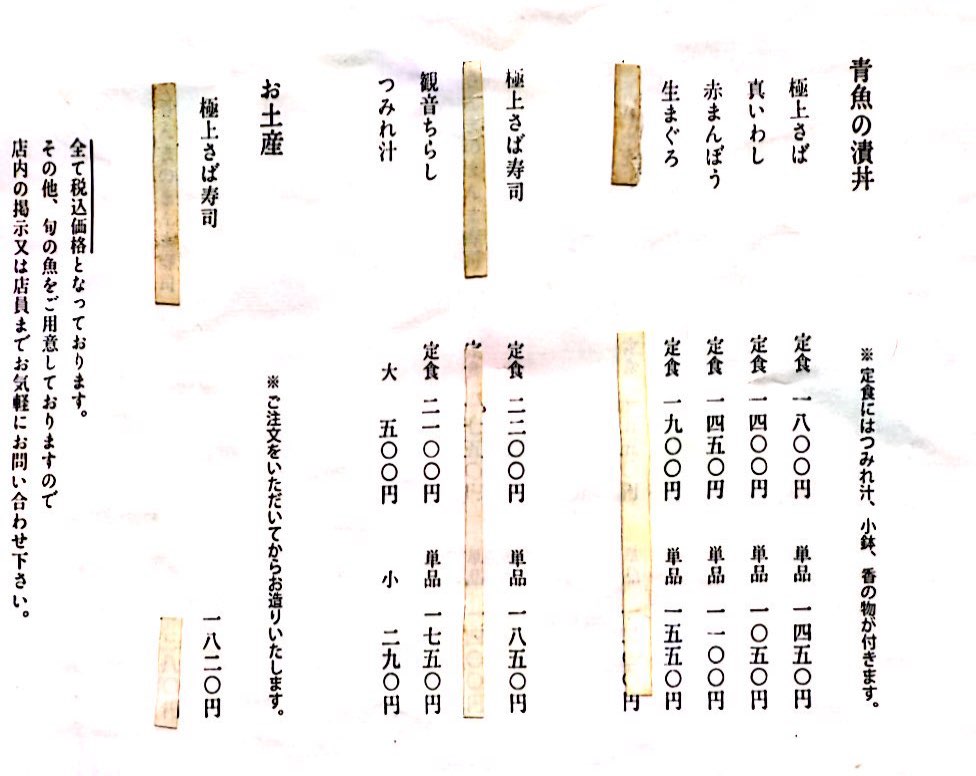 青魚の漬丼
※定食にはつみれ汁、小鉢、香の物が付きます。
極上さば 定食 一八〇〇円 単品 一四五〇円
真いわし 定食 一四〇〇円 単品 一〇五〇円
赤まんぼう 定食 一四五〇円 単品 一一〇〇円
生まぐろ 定食 一九〇〇円 単品 一五五〇円
円
極上さば寿司 定食 二二〇〇円 単品 一八五〇円
観音ちらし 定食 二一〇〇円 単品 一七五〇円
つみれ汁 大 五〇〇円 小 二九〇円
お土産
※ご注文をいただいてからお造りいたします。
極上さば寿司 一八二〇円
全て税込価格となっております。
その他、旬の魚をご用意しておりますので
店内の掲示又は店員までお気軽にお問い合わせ下さい。